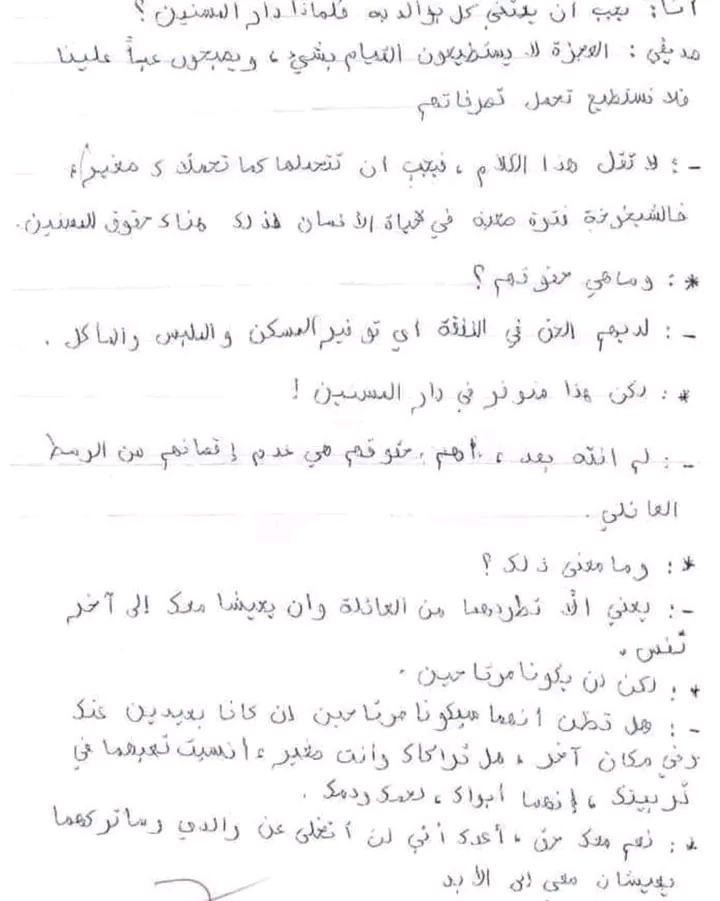 أنا: يجب ان يعتني كل بوالديه فلماذا دار المسنين؟
صديقي: العجزة لا يستطيعون القيام بشيء، ويصبحون عبأً علينا
فلا نستطيع تحمل تصرفاتهم
-: لا تقل هذا الكلام، فيجب ان تتحملها كما تحملاك صغيرا،
فالشيخوخة فترة صعبة في حياة الأنسان لذلك هناك حقوق للمسنين.
*: وماهي حقوقهم؟
-: لديهم الحق في النفقة اي توفير المسكن والملبس والمأكل.
*: لكن هذا متوفر في دار المسنين!
-: لم انته بعد، أهم حقوقهم هي عدم إقصائهم من الوسط
العائلي.
*: وما معنى ذلك؟
-: يعني ألّا تطردهما من العائلة وان يعيشا معك إلى آخر
نفس.
*: لكن لن يكونا مرتاحين.
-: هل تظن أنهما سيكونا مرتاحين ان كانا بعيدين عنك
وفي مكان آخر، هل تركاك وانت صغير، أنسيت تعبهما في
تربيتك، إنهما أبواك، لحمك ودمك.
*: نعم معك حق، أعدك أني لن أتخلى عن والدي وساتركهما
يعيشان معي إلى الأبد